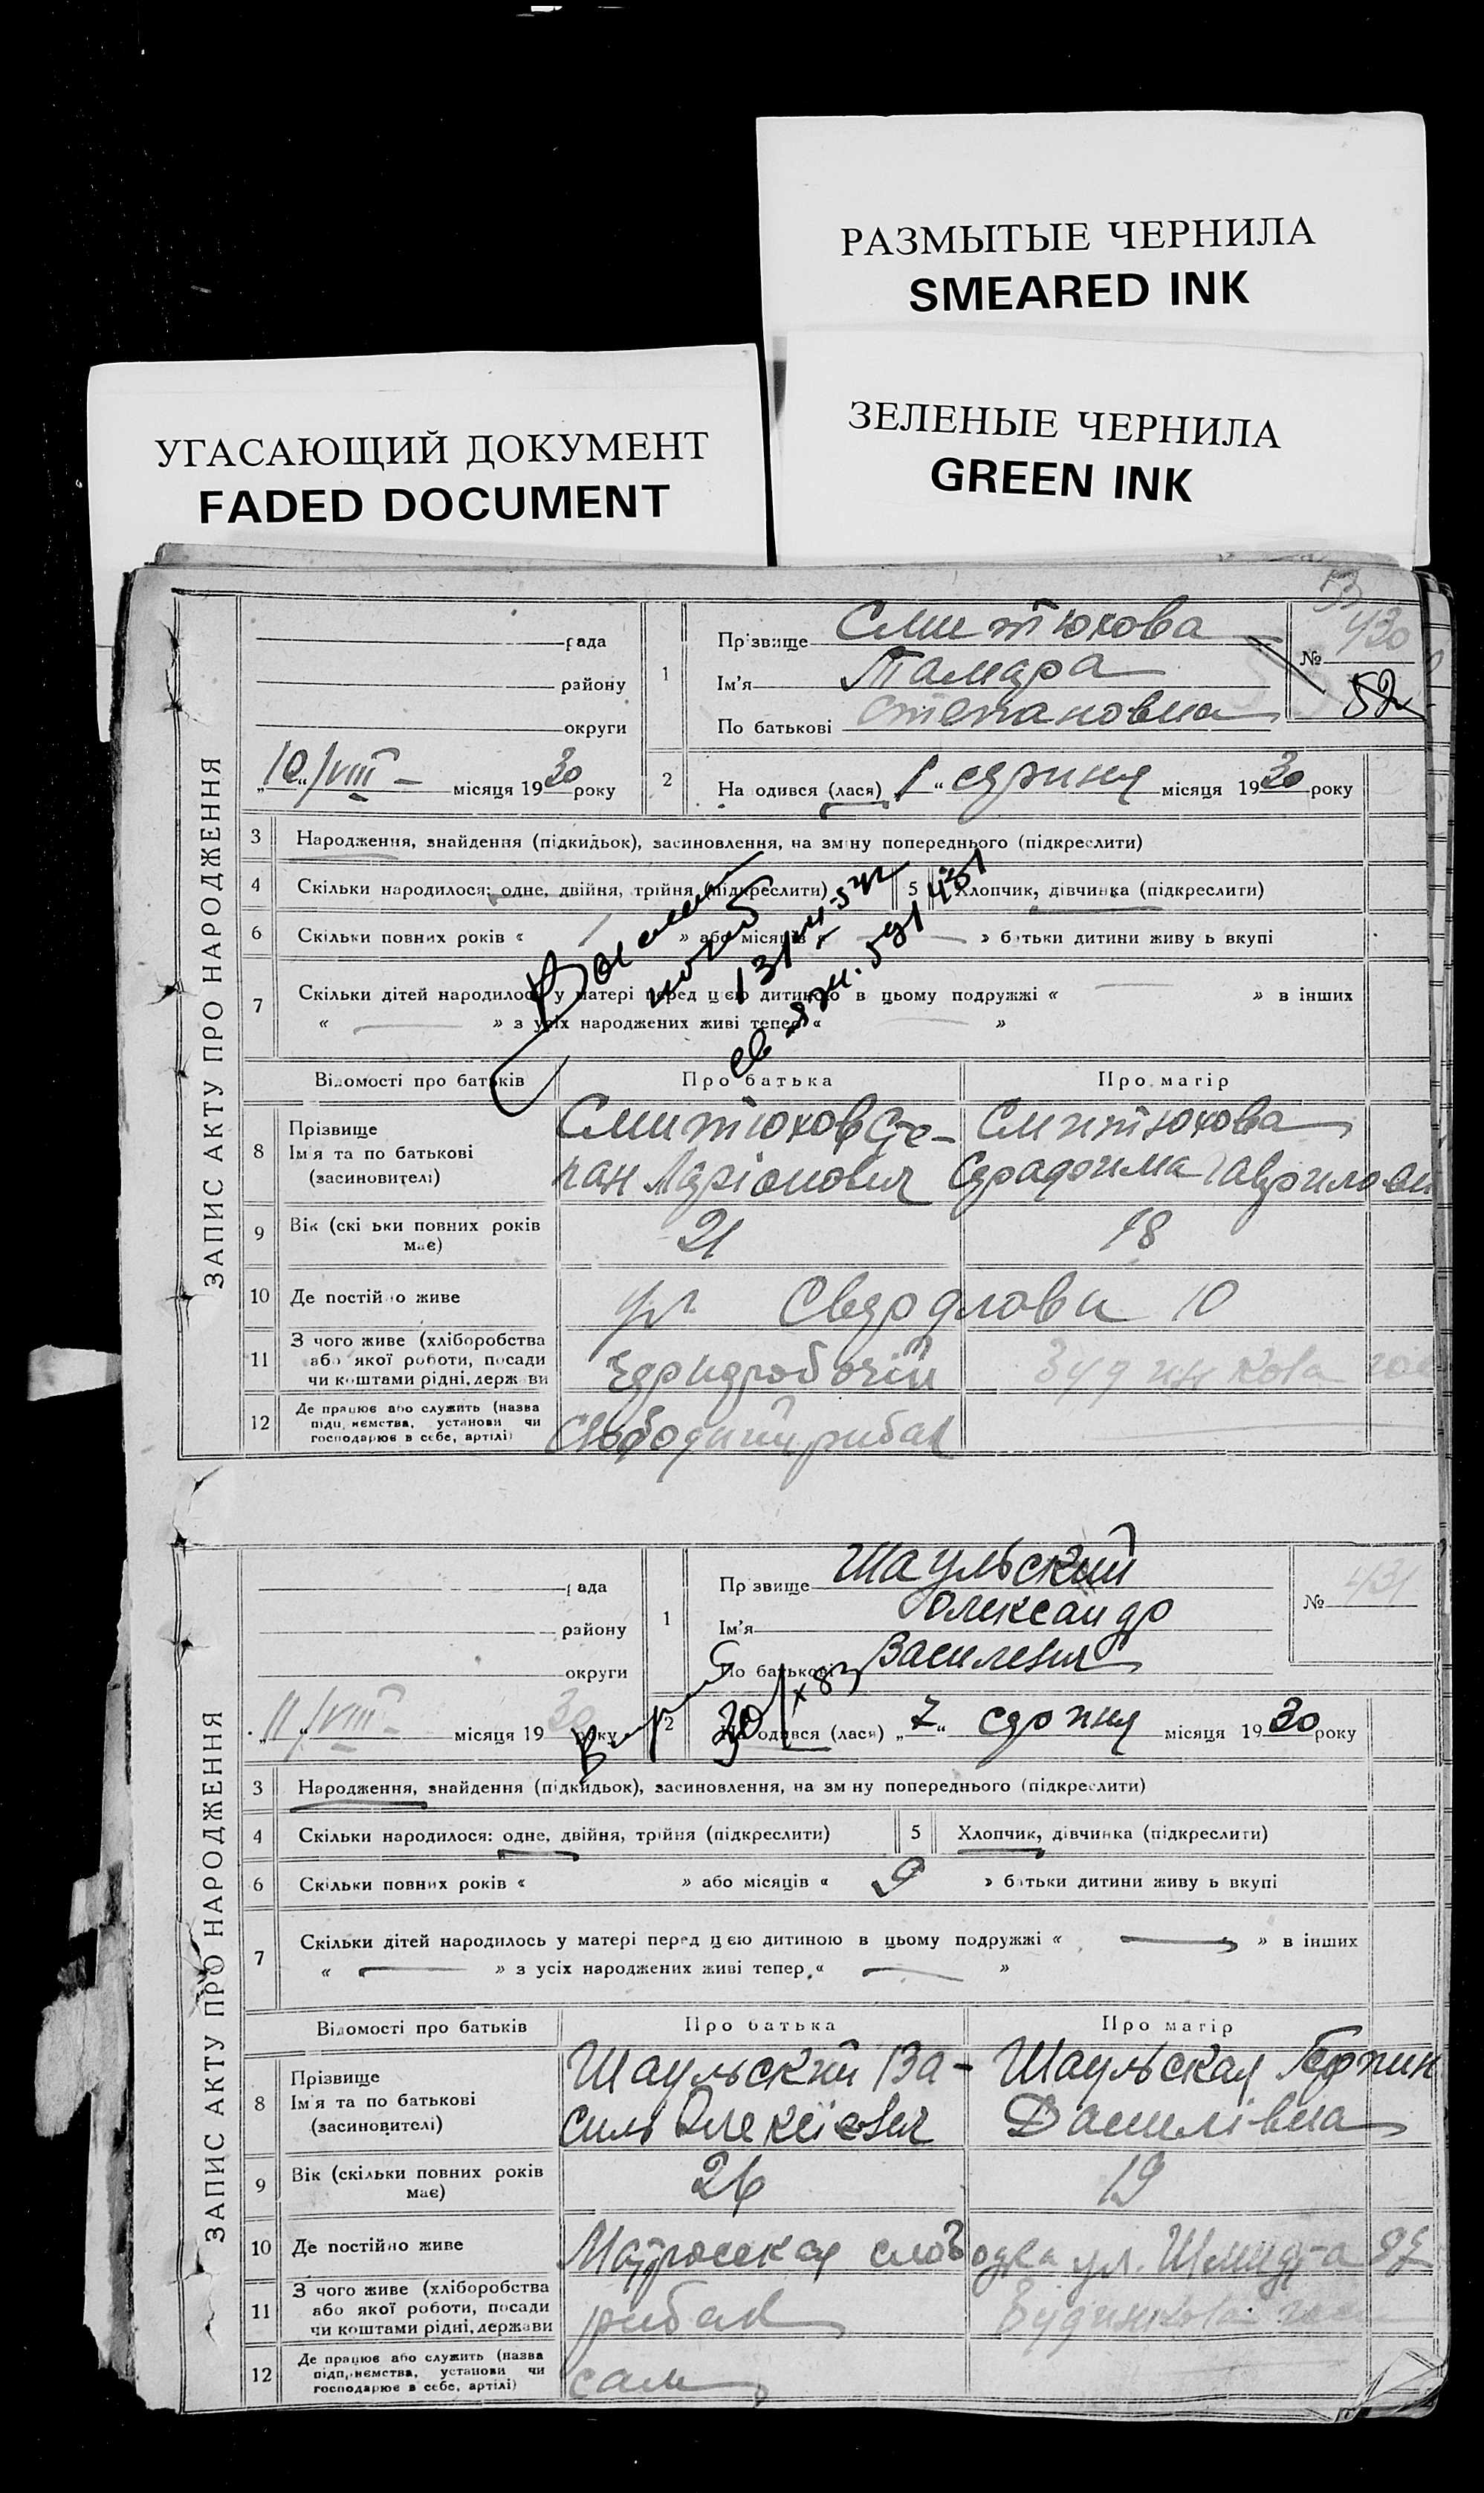 РАЗМЫТЫЕ ЧЕРНИЛА
SMEARED INK
ЗЕЛЕНЫЕ ЧЕРНИЛА
GREEN INK
УГАСАЮЩИЙ ДОКУМЕНТ
FADED DOCUMENT
ЗАПИС АКТУ ПРО НАРОДЖЕННЯ
рада
району
округи
"10"/VIII – місяця 1930 року
1
Прізвище Смитюхова
Ім'я Тамара
По батькові Степановна
№ 430
52
2 На одився (лася) "1" серпня місяця 1930 року
3 Народження, знайдення (підкидьок), засиновлення, на зміну попереднього (підкреслити)
4 Скільки народилося: одне, двійня, трійня (підкреслити) 5 Хлопчик, дівчинка (підкреслити)
6 Скільки повних років « » або місяців « » батьки дитини живу ь вкупі
7 Скільки дітей народилось у матері перед цією дитиною в цьому подружжі « » в інших
« » з усіх народжених живі тепер « »
Відомості про батьків Про батька Про матір
8 Прізвище Ім'я та по батькові (засновителі)
Смитюхов Сте-
пан Ларіонович
Смитюхова
Серафима Гаврилов
9 Вік (скі ьки повних років має) 21 18
10 Де постійно живе ул Свердлова 10
11 З чого живе (хліборобства або якої роботи, посади чи коштами рідні, держави
12 Де працює або служить (назва підприємства, установи чи господарює в себе, артілі) рибак
ЗАПИС АКТУ ПРО НАРОДЖЕННЯ
рада
району
округи
"11"/VIII – місяця 1930 року
1
Пр звище Шаульский
Ім'я Олександр
По батькові Василевич
№ 431
2 На одився (лася) "7" серпня місяця 1930 року
3 Народження, знайдення (підкидьок), засиновлення, на зм ну попереднього (підкреслити)
4 Скільки народилося: одне, двійня, трійня (підкреслити) 5 Хлопчик, дівчинка (підкреслити)
6 Скільки повних років « » або місяців « 9 » батьки дитини живу ь вкупі
7 Скільки дітей народилось у матері перед цією дитиною в цьому подружжі « » в інших
« » з усіх народжених живі тепер « »
Відомості про батьків Про батька Про матір
8 Прізвище Ім'я та по батькові (засновителі)
Шаульский Ва-
силь Олексієвич
Шаульская
Данилівна
9 Вік (скільки повних років має) 26 19
10 Де постійно живе Матросская слободка ул. Шмидта
11 З чого живе (хліборобства або якої роботи, посади чи коштами рідні, держави рибак
12 Де працює або служить (назва підприємства, установи чи господарює в себе, артілі) сам